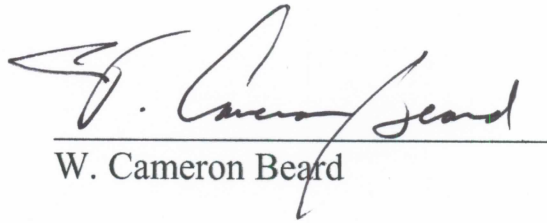 W. Cameron Beard
W. Cameron Beard